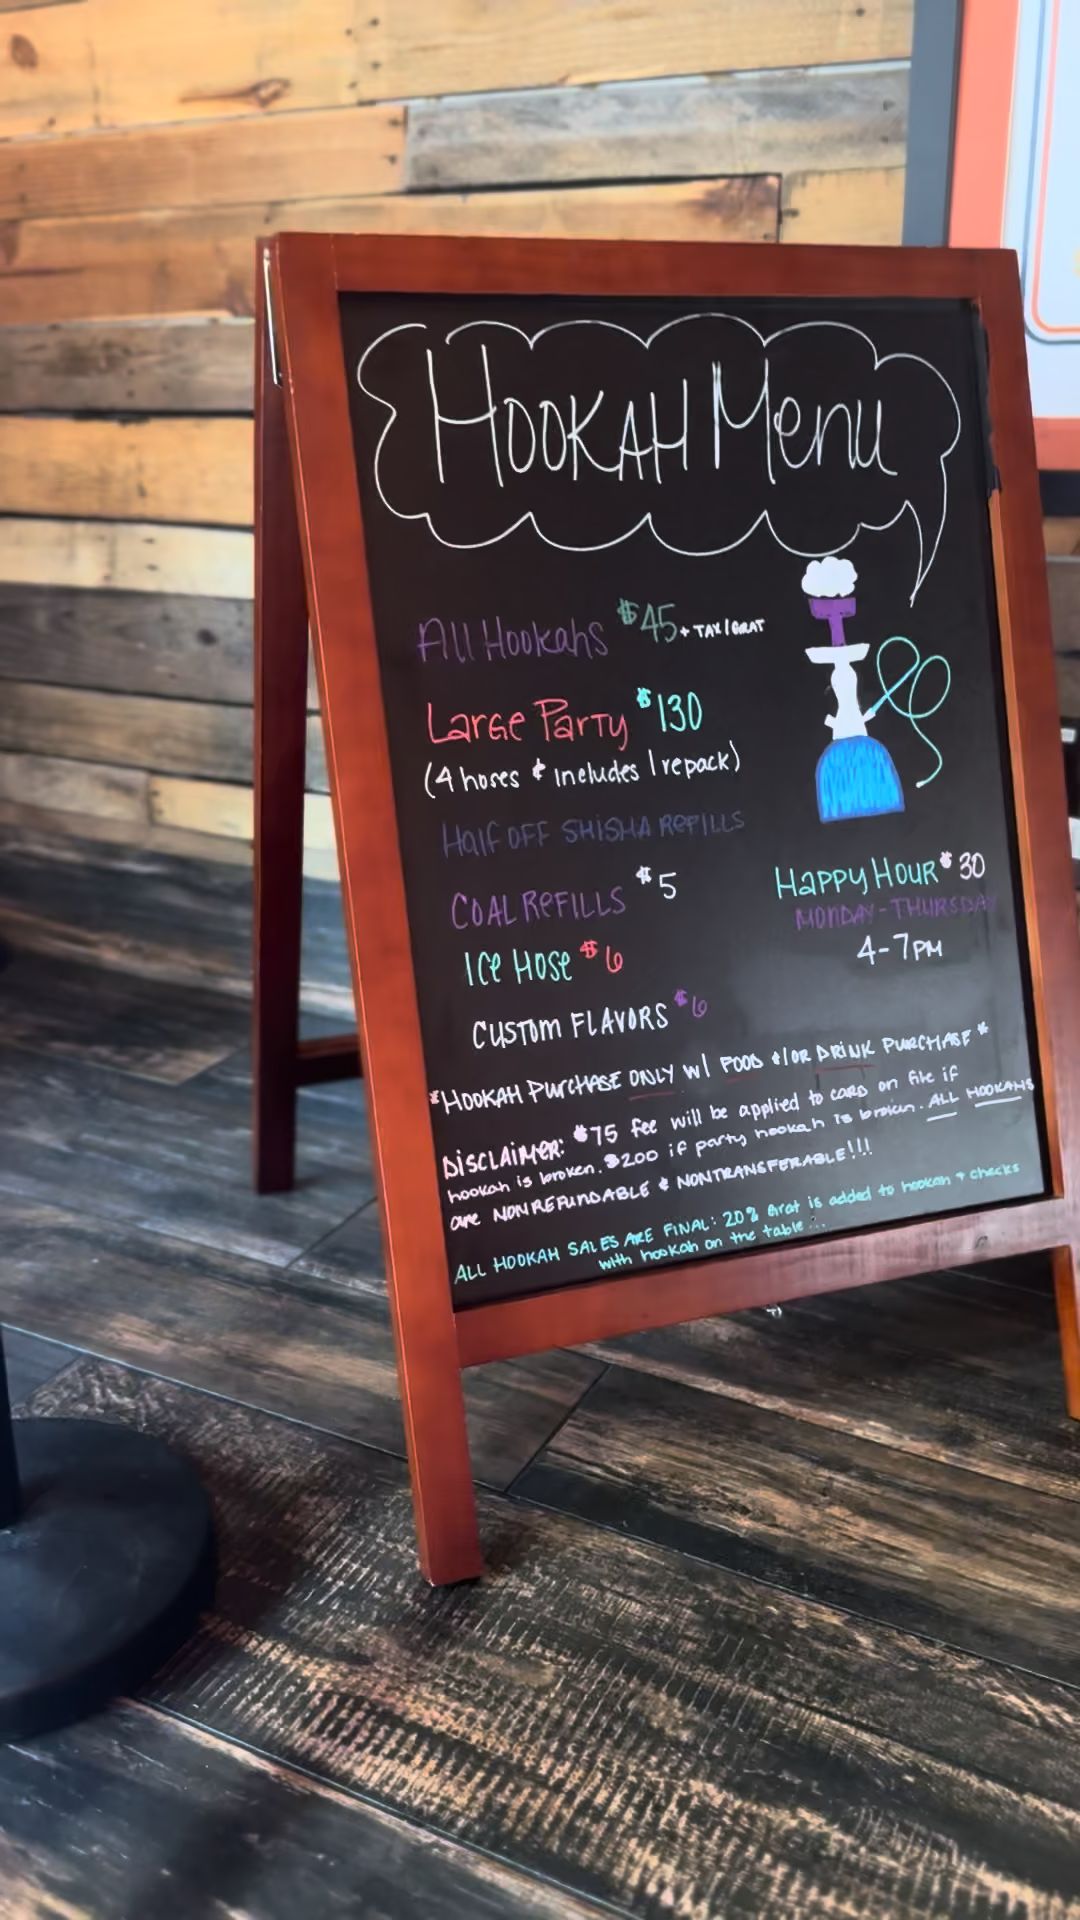 HOOKAH Menu
All Hookahs $45 + TAX/GRAT
Large Party $130
(4 hoses & includes 1 repack)
Half OFF SHISHA REFILLS
COAL REFILLS $5
ICE HOSE $6
CUSTOM FLAVORS $6
Happy Hour $30
MONDAY - THURSDAY
4-7PM
*HOOKAH PURCHASE ONLY w/ FOOD &/OR DRINK PURCHASE*
DISCLAIMER: $75 fee will be applied to card on file if
hookah is broken. $200 if party hookah is broken. ALL HOOKAHS
are NONREFUNDABLE & NONTRANSFERABLE!!!
ALL HOOKAH SALES ARE FINAL: 20% Grat is added to hookah & checks
with hookah on the table...